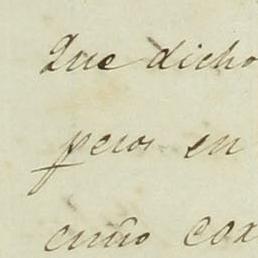 Que dicho
pesos en
cuño cor